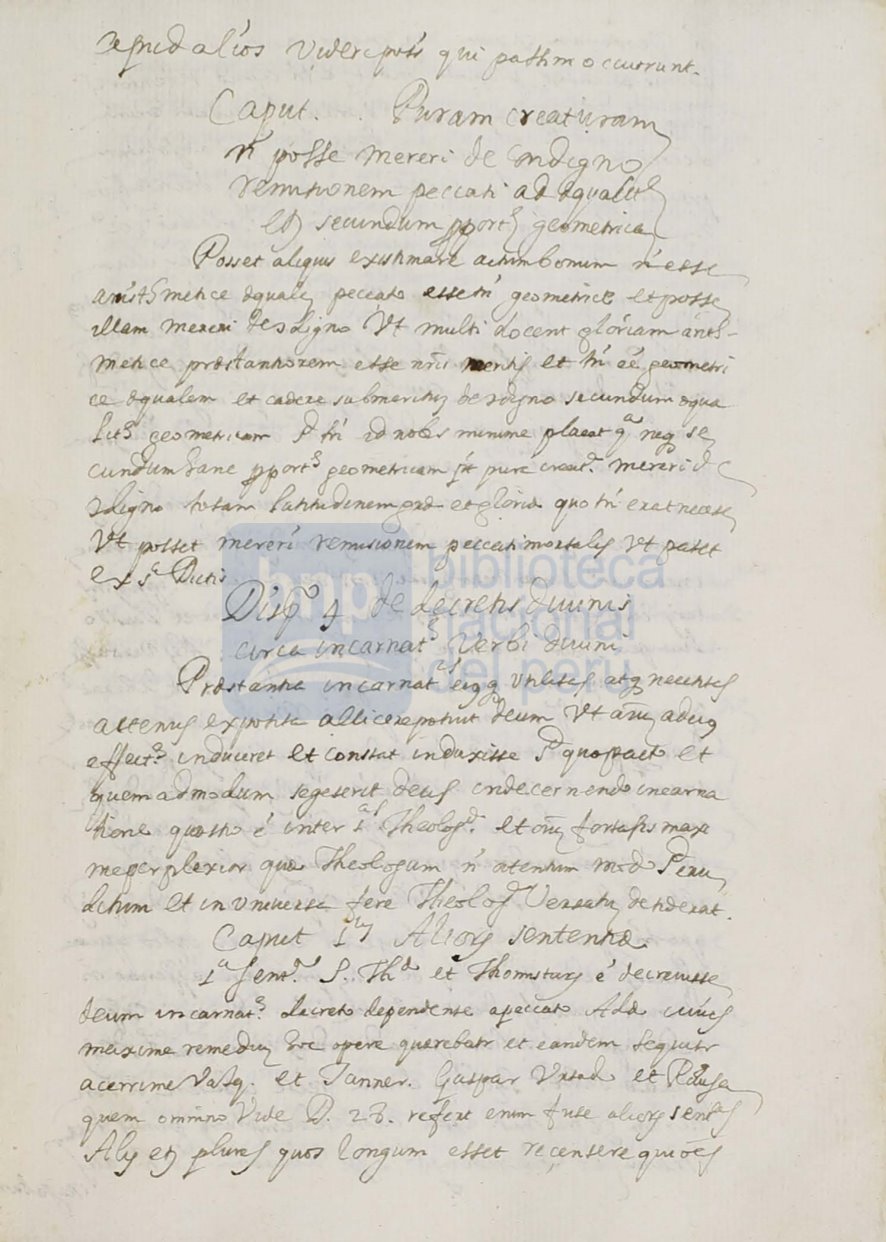 apud alios videri potest qui passim occurrunt.
Caput . . Puram creaturam
n posse mereri de condigno
remissionem peccati ad æqualit
etiam secundum pport geometrica
Posset aliquis existimare actum bonum n esse
arithmetice æqualem peccato esse tn geometrice et posse
illam mereri de condigno Vt multi docent gloriam arith-
metice præstantiorem esse nris meritis et tn geometri
ce æqualem et cadere sub meritum de condigno secundum æqua
lit geometricam Sed tn id nobis minime placet neq se
cundum hanc pport geometricam pure creat mereri de
condigno totam latitudinem et gloriæ quo tn erat necesse
Vt posset mereri remissionem peccati mortalis Vt patet
ex Dictis
Disp 4 de decretis diuinis
circa incarnat Verbi diuini
Præstantia incarnat eiusq utilitas atq necessitas
actenus exposita allicere potuit deum Vt
effect induceret et constat induxisse Sed quo pacto et
quemadmodum segeserit deus in decernendo incarna
tione quæstio é inter Theolog et fortassis maxi
me perplexior quæ Theologum n
ditum et in vniuersa fere Theolog Versatum desiderat.
Caput 1 Aliorum sententiæ
1ª Sent. S. Th et Thomistarum é decreuisse
deum incarnat decreto dependente a peccato Adæ cuius
maxime remedium hoc opere quærebatr et eandem sequitr
acerrime Vasq. et Tanner. Gaspar Vrtad et
quem omnino Vide D. 28. refert enim fuse aliorum sent
Alii et plures quos longum esset recensere qui